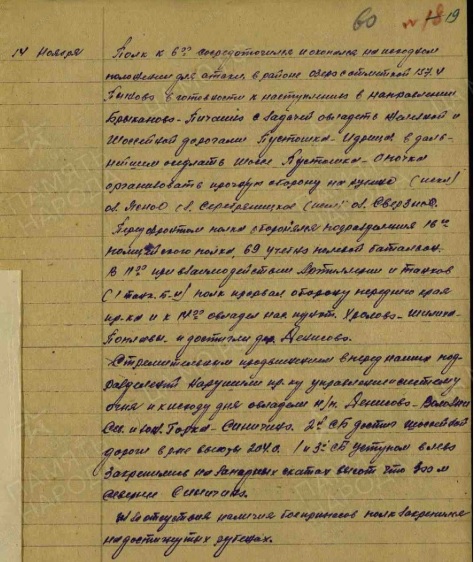 60 № 18 19
14 Ноября Полк к 6:00 сосредоточился и окопался на исходном
положении для атаки, в районе озера с отметкой 157.4
Быково в готовности к наступлению в направлении
с задачей овладеть железной и
шоссейной дорогами Пустошка - Идрица в даль-
нейшем оседлать шоссе Пустошка - Опочка
организовать прочную оборону на рубеже (искл)
оз. Ясно св. Серебреницкая (искл) оз. Свержино.
Перед фронтом полка оборонялся подразделения 16го
полицейского полка, 69 учебно полевой баталион.
В 11:00 при взаимодействии Артиллерии и танков
полк прорвал оборону переднего края
пр-ка и к 14:00 овладел нас. пункт. Хролово - Шилиха
и достигли дер. Денисово.
Стремительным продвижением вперед наших под-
разделений нарушили пр-ку управление и систему
огня и к исходу дня овладели н/п. Денисово -
Горка - Синичино. 2й СБ достиг шоссейной
дороги в р-не высоты 204.0. 1 и 3й СБ уступом влево
закрепились на западных скатах высот что 300 м
севернее Синичино.
отсутствия наличия боеприпасов полк закрепился
на достигнутых рубежах.
ПАМЯТЬ НАРОДА